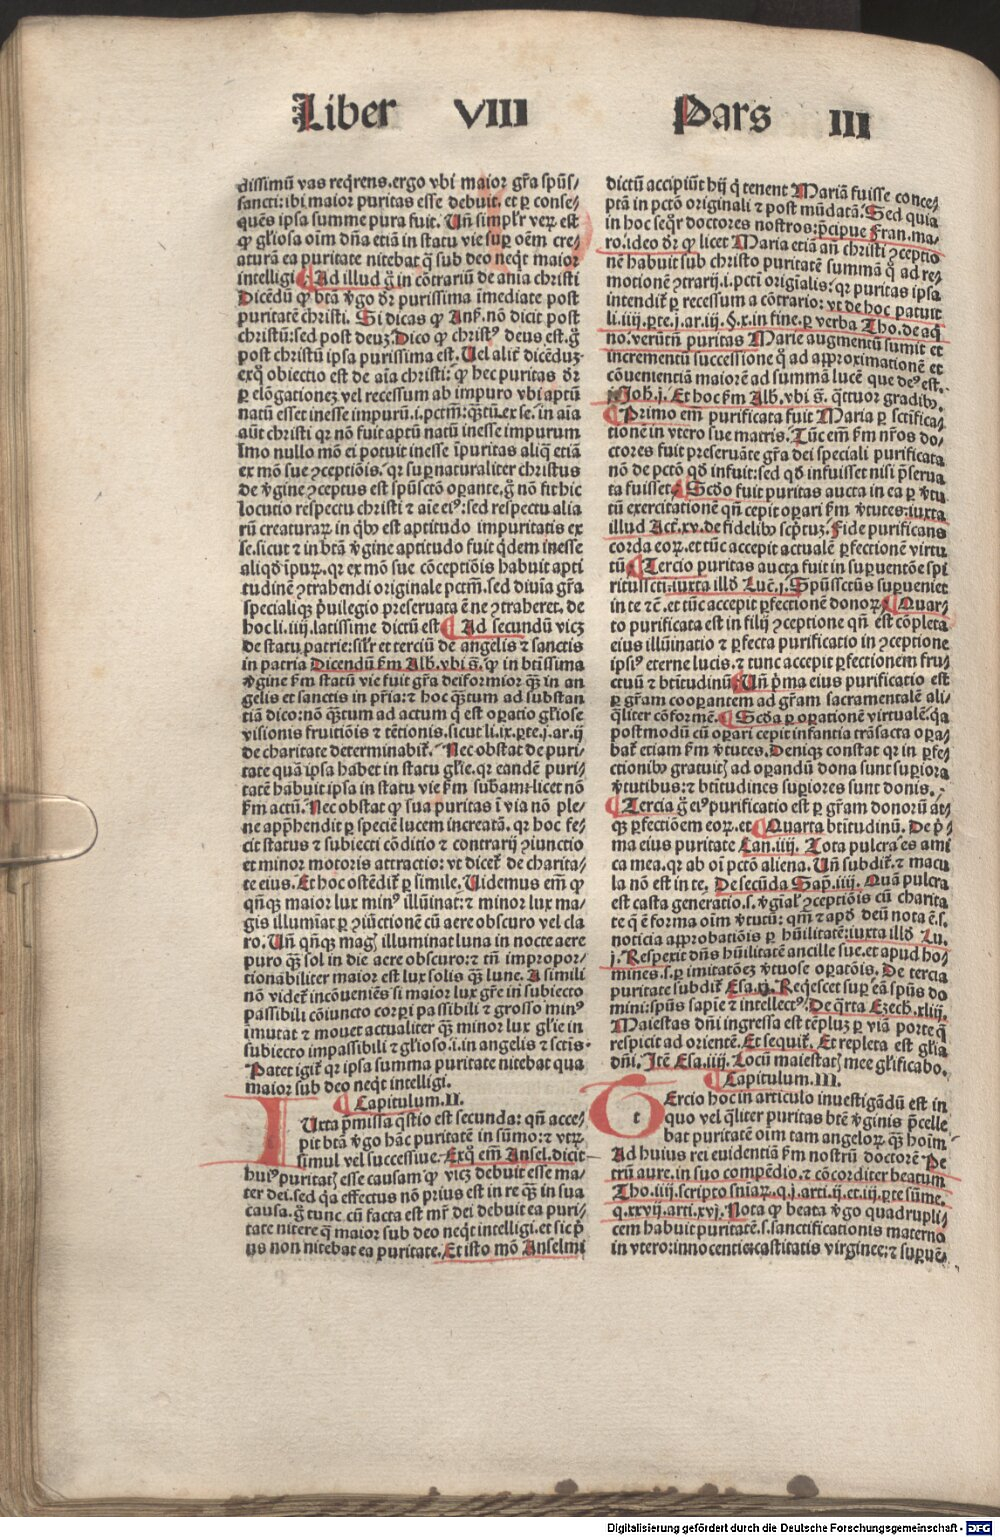 Liber VIII Pars III
dissimū vas reqrens.ergo vbi maior gr̄a spūs⸗
sancti:ibi maior puritas esse debuit.et ꝑ conse⸗
quēs ipsa summe pura fuit. Uñ simplr̄ veꝝ est
ꝙ gl̄iosa oīm dn̄a etiā in statu vie suꝑ oēm cre⸗
aturā ea puritate nitebat̄ q̄ sub deo neqͥt maior
intelligi ¶ Ad illud g̊ in cōtrariū de aīa christi
Dicēdū ꝙ btā v̓go dr̄ purissima īmediate post
puritatē christi. Si dicas ꝙ Ansͫ. nō dicit post
christū:sed post deuꝫ. Dico ꝙ christꝰ deus est.g̊
post christū ipsa purissima est. Uel alit̄ dicēduꝫ
exq̊ obiectio est de aīa christi: ꝙ hec puritas dr̄
ꝑ elōgationeꝫ vel recessum ab impuro vbi aptū
natū esset inesse impurū.i.pctm̄:q̄tū.ex se.in aīa
aūt christi qr nō fuit aptū natū inesse impurum
Imo nullo mō ei potuit inesse īpuritas aliq̄ etiā
ex mō sue ꝯceptiōis.qr suꝑnaturaliter christus
de v̓gine ꝯceptus est spūsctō oꝑante.g̊ nō fit hic
locutio respectu christi ⁊ aīe eiꝰ:sed respectu alia
rū creaturaꝝ in qͥbꝰ est aptitudo impuritatis ex
se.sicut ⁊ in btā v̓gine aptitudo fuit qͥdem inesse
aliqd̓ īpuꝝ.qr ex mō sue cōceptiōis habuit apti
tudinē ꝯtrahendi originale pctm̄.sed diuīa gr̄a
specialiqꝫ p̓uilegio preseruata ē ne ꝯtraheret.de
hoc li.iiij.latissime dictū est ¶ Ad secundū vicꝫ
de statu patrie:silr̄ et terciū de angelis ⁊ sanctis
in patria Dicendū ẜm Alb̓.vbi s̄.ꝙ in btīssima
v̓gine ẜm statū vie fuit gr̄a deiformior qꝫ in an
gelis et sanctis in pr̄ia:⁊ hoc q̄tum ad substan
tiā dico:nō q̄tum ad actum q̄ est oꝑatio gl̄iose
visionis fruitiōis ⁊ tētionis.sicut li.ix.ꝑte.j.ar.ij
de charitate determinabit̄. Nec obstat de puri⸗
tate quā ipsa habet in statu gl̄ie.qr eandē puri⸗
tatē habuit ipsa in statu vie ẜm subam̄:licet nō
ẜm actū. Nec obstat ꝙ sua puritas ī via nō ple⸗
ne app̓hendit ꝑ speciē lucem increatā. qr hoc fe⸗
cit status ⁊ subiecti cōditio ⁊ contrarij ꝯiunctio
et minor motoris attractio: vt dicet̄ de charita⸗
te eius. Et hoc ostēdit̄ ꝑ simile. Uidemus em̄ ꝙ
qn̄qꝫ maior lux minꝰ illūinat:⁊ minor lux ma⸗
gis illumīat ꝑ ꝯiūctionē cū aere obscuro vel cla
ro. Uñ qn̄qꝫ magꝭ illuminat luna in nocte aere
puro qꝫ sol in die aere obscuro:⁊ tn̄ impropor⸗
tionabiliter maior est lux solis qꝫ lune. A simili
nō videt̄ incōueniēs si maior lux gr̄e in subiecto
passibili cōiuncto corꝑi passibili ⁊ grosso minꝰ
īmutat ⁊ mouet actualiter qꝫ minor lux gl̄ie in
subiecto impassibili ⁊ gl̄ioso.i.in angelis ⁊ sctīs.
Patet igit̄ qr ipsa summa puritate nitebat̄ qua
maior sub deo neqͥt intelligi.
¶ Capitulum.II.
IUxta p̓missa q̄stio est secunda: qn̄ acce⸗
pit btā v̓go hāc puritatē in sūmo:⁊ vtꝝ
simul vel successiue. Exq̊ em̄ Ansel.dicit
huiꝰ puritatꝭ esse causam ꝙ vicꝫ debuit esse ma⸗
ter dei.sed qͥa effectus nō prius est in re qꝫ in sua
causa.g̊ tunc cū facta est mr̄ dei debuit ea puri⸗
tate nitere q̄ maior sub deo neqͥt intelligi.et sic p̓
us non nitebat̄ ea puritate. Et isto mō Anselmi
dictū accipiūt hij q̓ tenent Mariā fuisse conce⸗
ptā in pctō originali ⁊ post mūdatā. Sed quia
in hoc seqr̄ doctores nostros:p̄cipue Fran.ma⸗
ro.ideo dr̄ ꝙ licet Maria etiā an̄ christi ꝯceptio
nē habuit sub christo puritatē summā q̊ ad re⸗
motionē ꝯtrarij.i.pctī originalis: qr puritas ipsa
intendit̄ ꝑ recessum a cōtrario: vt de hoc patuit
li.iiij.ꝑte.j.ar.iij.§.x.in fine.ꝑ verba Tho.de aq̄
no.verūtn̄ puritas Marie augmentū sumit et
incrementū successione q̊ ad approximationē et
cōuenientiā maiorē ad summā lucē que deꝰ est.
j.Joh̓.j. Et hoc ẜm Alb̓.vbi s̄. qͣttuor gradibꝰ.
¶ Primo em̄ purificata fuit Maria ꝑ sctīfica⸗
tionē in vtero sue matris. Tūc em̄ ẜm nr̄os do⸗
ctores fuit preseruāte gr̄a dei speciali purificata
nō de pctō qd̓ infuit:sed qd̓ infuisset nisi p̄serua
ta fuisset ¶ Scd̓o fuit puritas aucta in ea ꝑ v̓tu
tū exercitationē qn̄ cepit oꝑari ẜm v̓tutes:iuxta
illud Act̄.xv.de fidelibꝰ scp̄tuꝫ. Fide purificans
corda eoꝝ.et tūc accepit actualē ꝑfectionē virtu
tū ¶ Tercio puritas aucta fuit in suꝑuentōe spi
ritussctī:iuxta illd̓ Luc̄.j. Spūssctūs suꝑueniet
in te ⁊c̄.et tūc accepit ꝑfectionē donoꝝ ¶ Quar⸗
to purificata est in filij ꝯceptione qn̄ est cōpleta
eius illūinatio ⁊ ꝑfecta purificatio in ꝯceptione
ipsiꝰ eterne lucis.⁊ tunc accepit ꝑfectionem fru⸗
ctuū ⁊ btītudinū ¶ Uñ p̓ma eius purificatio est
ꝑ gr̄am cooꝑantem ad gr̄am sacramentalē ali⸗
qͣliter cōformē. ¶ Scd̓a ꝑ oꝑationē virtualē.qͣ
postmodū cū oꝑari cepit infantia trāsacta oꝑa⸗
bat̄ etiam ẜm v̓tutes. Deniqꝫ constat qr in ꝑfe⸗
ctionibꝰ gratuitꝭ ad oꝑandū dona sunt suꝑiora
v̓tutibus:⁊ btītudines suꝑiores sunt donis.
¶ Tercia g̊ eiꝰ purificatio est ꝑ gr̄am donorū at⸗
qꝫ ꝑfectiōem eoꝝ.et ¶ Quarta btītudinū. De p̓⸗
ma eius puritate Can.iiij. Tota pulcra es ami
ca mea.qr ab oī pctō aliena. Uñ subdit̄.⁊ macu
la nō est in te. De secūda Sap̄.iiij. Quā pulcra
est casta generatio.s.v̓gīal̓ ꝯceptiōis cū charita
te q̄ ē forma oīm v̓tutū: qm̄ ⁊ apd̓ deū nota ē.s.
noticia approbatiōis ꝑ hūilitatē:iuxta illd̓ Lu.
j. Respexit dn̄s hūilitatē ancille sue.et apud ho⸗
mines.s.ꝑ imitatōeꝫ v̓tuose oꝑatōis. De tercia
puritate subdit̄ Esa.xj. Reqͥescet suꝑ eā spūs do
mini:spūs sapīe ⁊ intellectꝰ. De qͣrta Ezech̓.xliij.
Maiestas dn̄i ingressa est tēpluꝫ ꝑ viā porte q̄
respicit ad orientē. Et sequit̄. Et repleta est gl̄ia
dn̄i. Itē Esa.iiij. Locū maiestatꝭ mee gl̄ificabo.
¶ Capitulum.III.
TErcio hoc in articulo inuestigādū est in
quo vel qͣliter puritas btē v̓ginis p̄celle
bat puritatē oīm tam angeloꝝ qꝫ hoīm
Ad huius rei euidentiā ẜm nostrū doctorē Pe
trū aure.in suo compēdio.⁊ cōcorditer beatum
Tho.iiij.scripto sn̄iaꝝ.q.j.arti.ij.et.iij.ꝑte sūme.
q.xxvij.arti.xvj. Nota ꝙ beata v̓go quadrupli⸗
cem habuit puritatē.s.sanctificationis materno
in vtero:innocentie:castitatis virginee:⁊ suꝑuē⸗
t
Digitalisierung gefördert durch die Deutsche Forschungsgemeinschaft - DFG